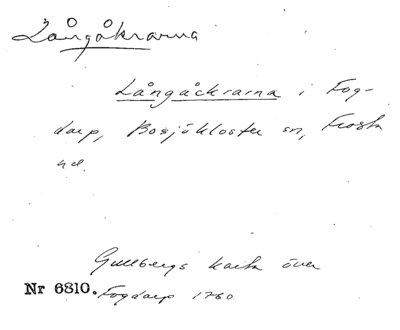 Långåkrarna
Långåckrarna i Fog-
darp, Bosjökloster sn, Frosta
hd.
Gullbergs karta över
Nr 6810. Fogdarp 1760.